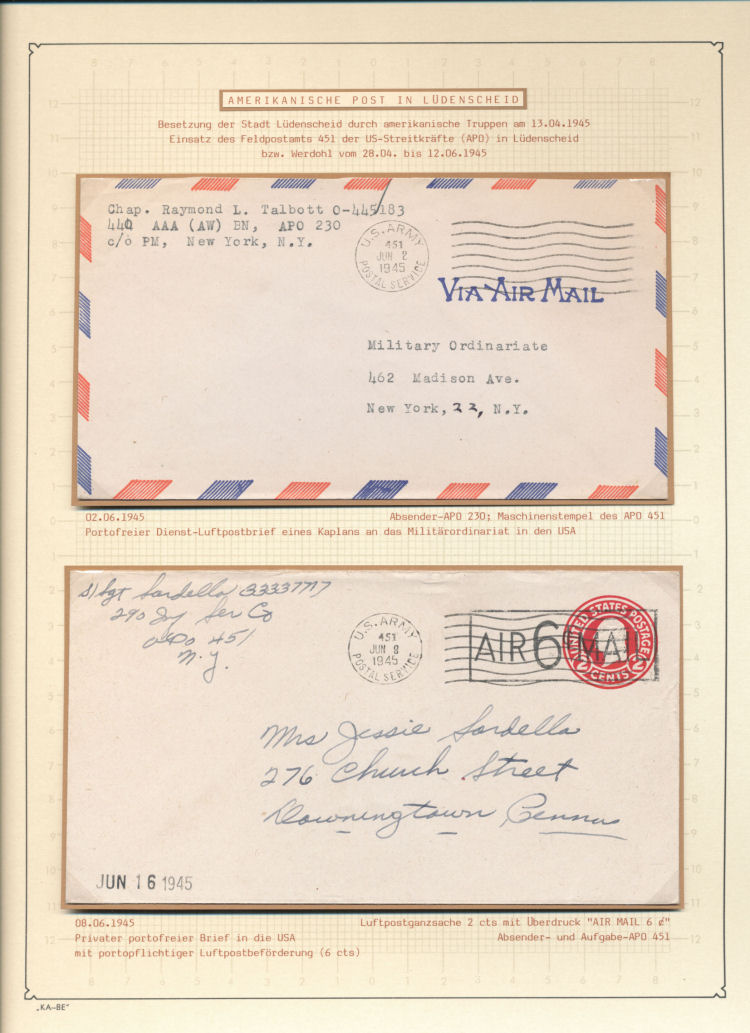 AMERIKANISCHE POST IN LÜDENSCHEID
Besetzung der Stadt Lüdenscheid durch amerikanische Truppen am 13.04.1945
Einsatz des Feldpostamts 451 der US-Streitkräfte (APO) in Lüdenscheid
bzw. Werdohl vom 28.04. bis 12.06.1945
Chap. Raymond L. Talbott O-445183
440 AAA (AW) BN, APO 230
c/o PM, New York, N.Y.
U.S. ARMY
451
JUN 2
1945
POSTAL SERVICE
VIA AIR MAIL
Military Ordinariate
462 Madison Ave.
New York, 22, N.Y.
02.06.1945
Absender-APO 230; Maschinenstempel des APO 451
Portofreier Dienst-Luftpostbrief eines Kaplans an das Militärordinariat in den USA
S/Sgt Sardella 33337717
290 Ser Co
APO 451
N.Y.
U.S. ARMY
451
JUN 8
1945
POSTAL SERVICE
UNITED STATES POSTAGE
AIR 6¢ MAIL
2 CENTS 2
Mrs Jessie Sardella
276 Church Street
Downingtown Penna
JUN 16 1945
08.06.1945
Luftpostganzsache 2 cts mit Überdruck "AIR MAIL 6 ¢"
Privater portofreier Brief in die USA
Absender- und Aufgabe-APO 451
mit portopflichtiger Luftpostbeförderung (6 cts)
„KA-BE"